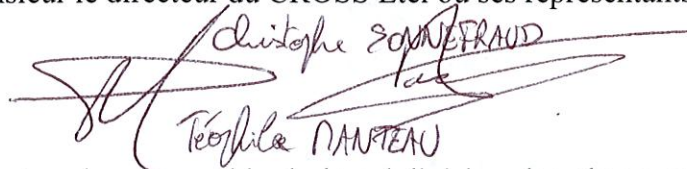 sieur le directeur du CROSS Etel ou ses représentants
Christophe SONNEFRAUD
Téophile MANTEAU